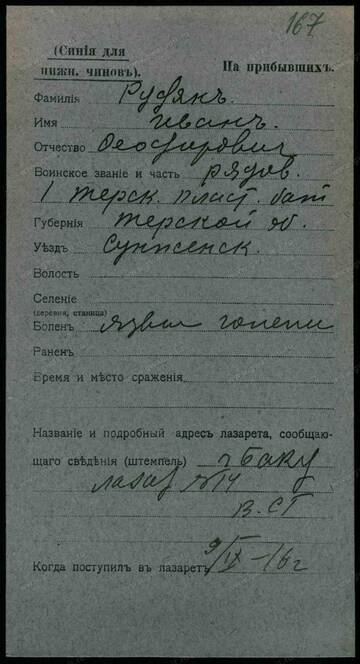 167
(Синія для
нижн. чиновъ).
На прибывшихъ.
Фамилія Рудякъ.
Имя Иванъ.
Отчество Феофорович
Воинское званіе и часть рядов.
1 терск. пласт. бат
Губернія Терской об.
Уѣздъ Сунженск.
Волость
Селеніе
(деревня, станица)
Боленъ язвы голени
Раненъ
Время и мѣсто сраженія
Названіе и подробный адресъ лазарета, сообщаю-
щаго свѣдѣнія (штемпель) г Баку
лазар №14
В. СТ
Когда поступилъ въ лазаретъ 9/IX-16 г